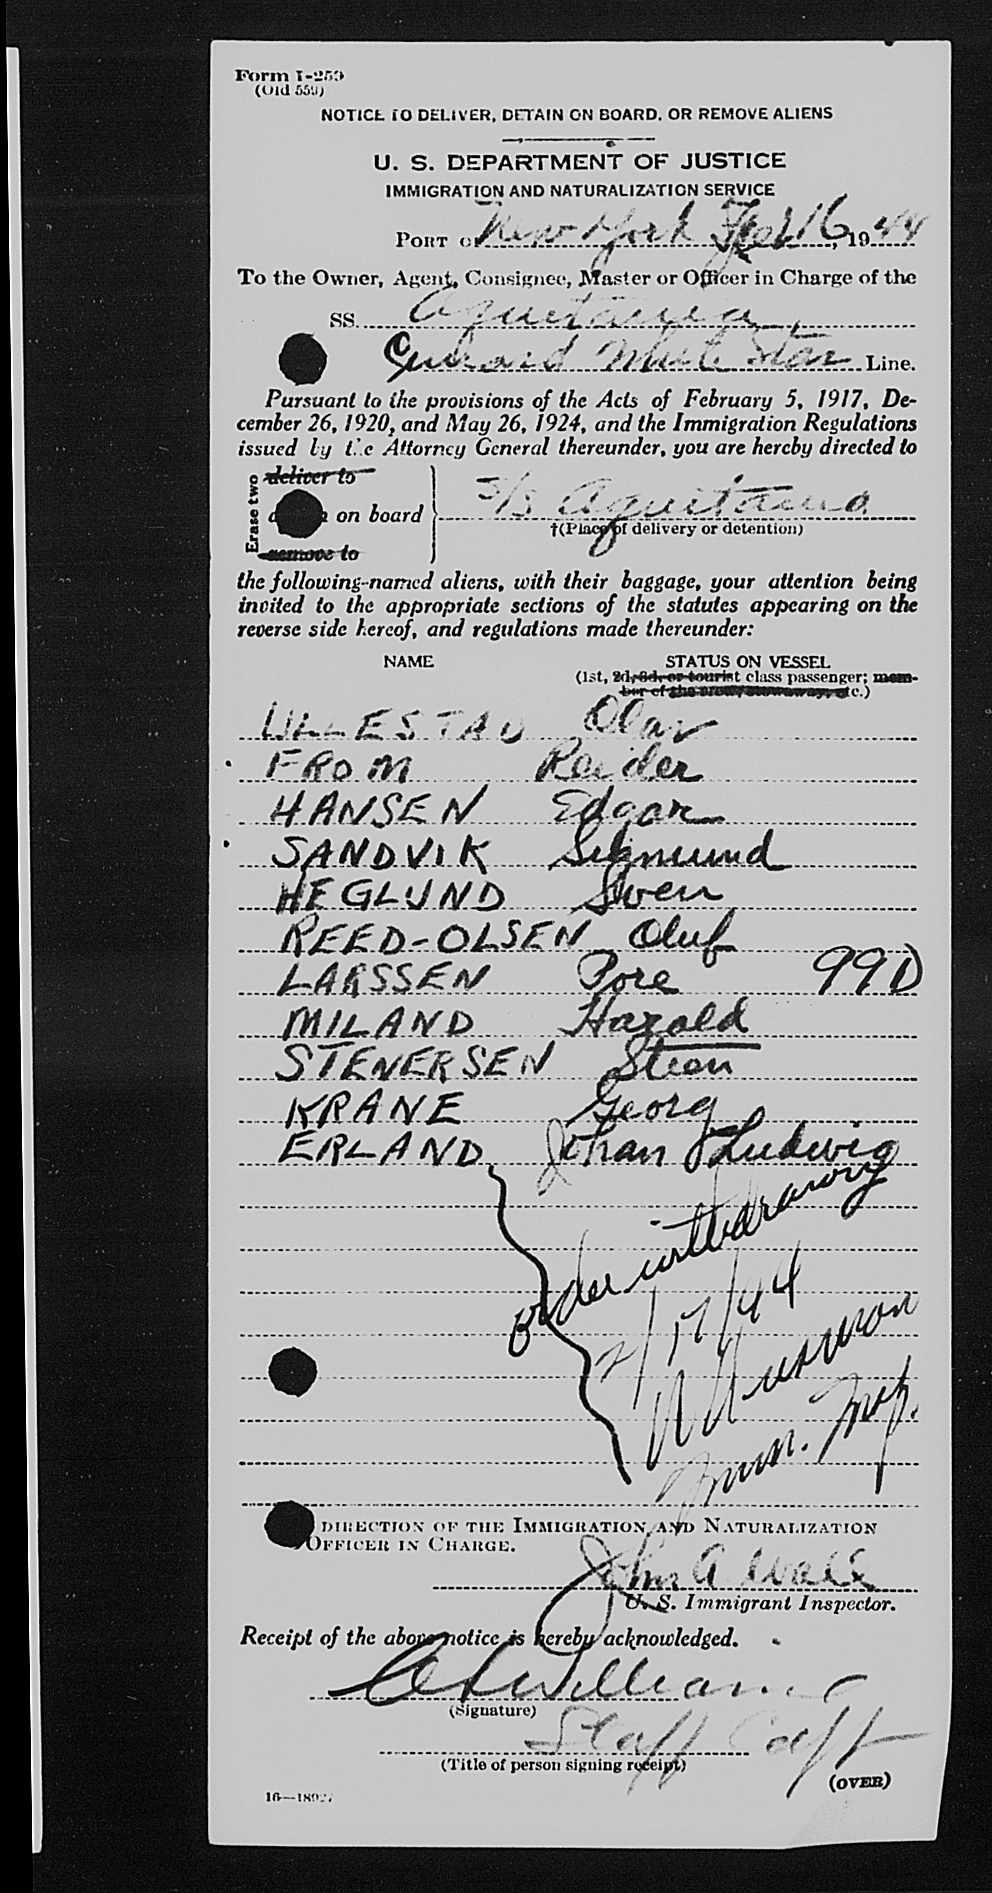 Form I-259
(Old 559)
NOTICE TO DELIVER, DETAIN ON BOARD, OR REMOVE ALIENS
U. S. DEPARTMENT OF JUSTICE
IMMIGRATION AND NATURALIZATION SERVICE
PORT OF New York Feb 16, 1944
To the Owner, Agent, Consignee, Master or Officer in Charge of the
SS. Aquitania
Cunard White Star Line.
Pursuant to the provisions of the Acts of February 5, 1917, De-
cember 26, 1920, and May 26, 1924, and the Immigration Regulations
issued by the Attorney General thereunder, you are hereby directed to
Erase two
deliver to
on board S/S Aquitania
†(Place of delivery or detention)
remove to
the following-named aliens, with their baggage, your attention being
invited to the appropriate sections of the statutes appearing on the
reverse side hereof, and regulations made thereunder:
NAME STATUS ON VESSEL
(1st, 2d, 3d, or tourist class passenger; mem-
ber of the crew, stowaway, etc.)
LILLESTAD Olav
FROM Reider
HANSEN Edgar
SANDVIK Sigmund
HEGLUND Sven
REED-OLSEN Oluf
LARSSEN Pore 99D
MILAND Harald
STENERSEN Steen
KRANE Georg
ERLAND Johan Ludwig
order withdrawn
2/17/44
Imm. Insp.
DIRECTION OF THE IMMIGRATION AND NATURALIZATION
OFFICER IN CHARGE.
John A Wall
U. S. Immigrant Inspector.
Receipt of the above notice is hereby acknowledged.
Williams
(Signature)
Staff Capt
(Title of person signing receipt)
(OVER)
16—18927